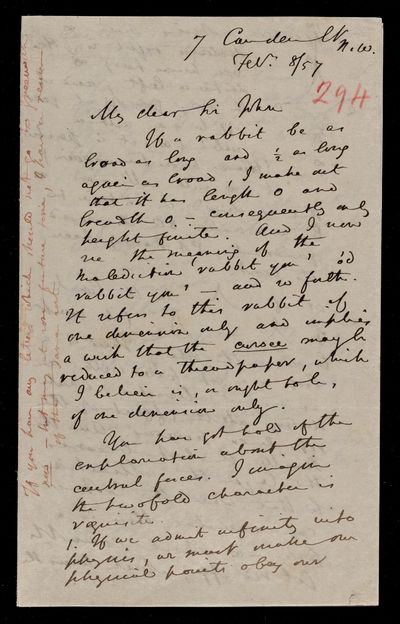 7 Camden St
N.W.
Feb. 8/57
294
My dear Sir John
If a rabbit be as
broad as long and ½ as long
again as broad, I make out
that it has length 0 and
breadth 0 - consequently only
height finite. And I now
see the meaning of the
malediction 'rabbit you', 'od
rabbit you' - and so forth.
It refers to this rabbit of
one dimension only and implies
a wish that the cursee may be
reduced to a
I believe is, or ought to be,
of one dimension only.
You have got hold of the
explanation about the
central forces. I imagine
the twofold character is
requisite.
1. If we admit infinity into
physics, we must make our
physical points obey our
If you have any letters which should not go to